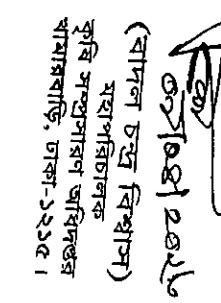 (বাদল চন্দ্র বিশ্বাস)
মহাপরিচালক
কৃষি সম্প্রসারণ অধিদপ্তর
খামারবাড়ি, ঢাকা-১২১৫।